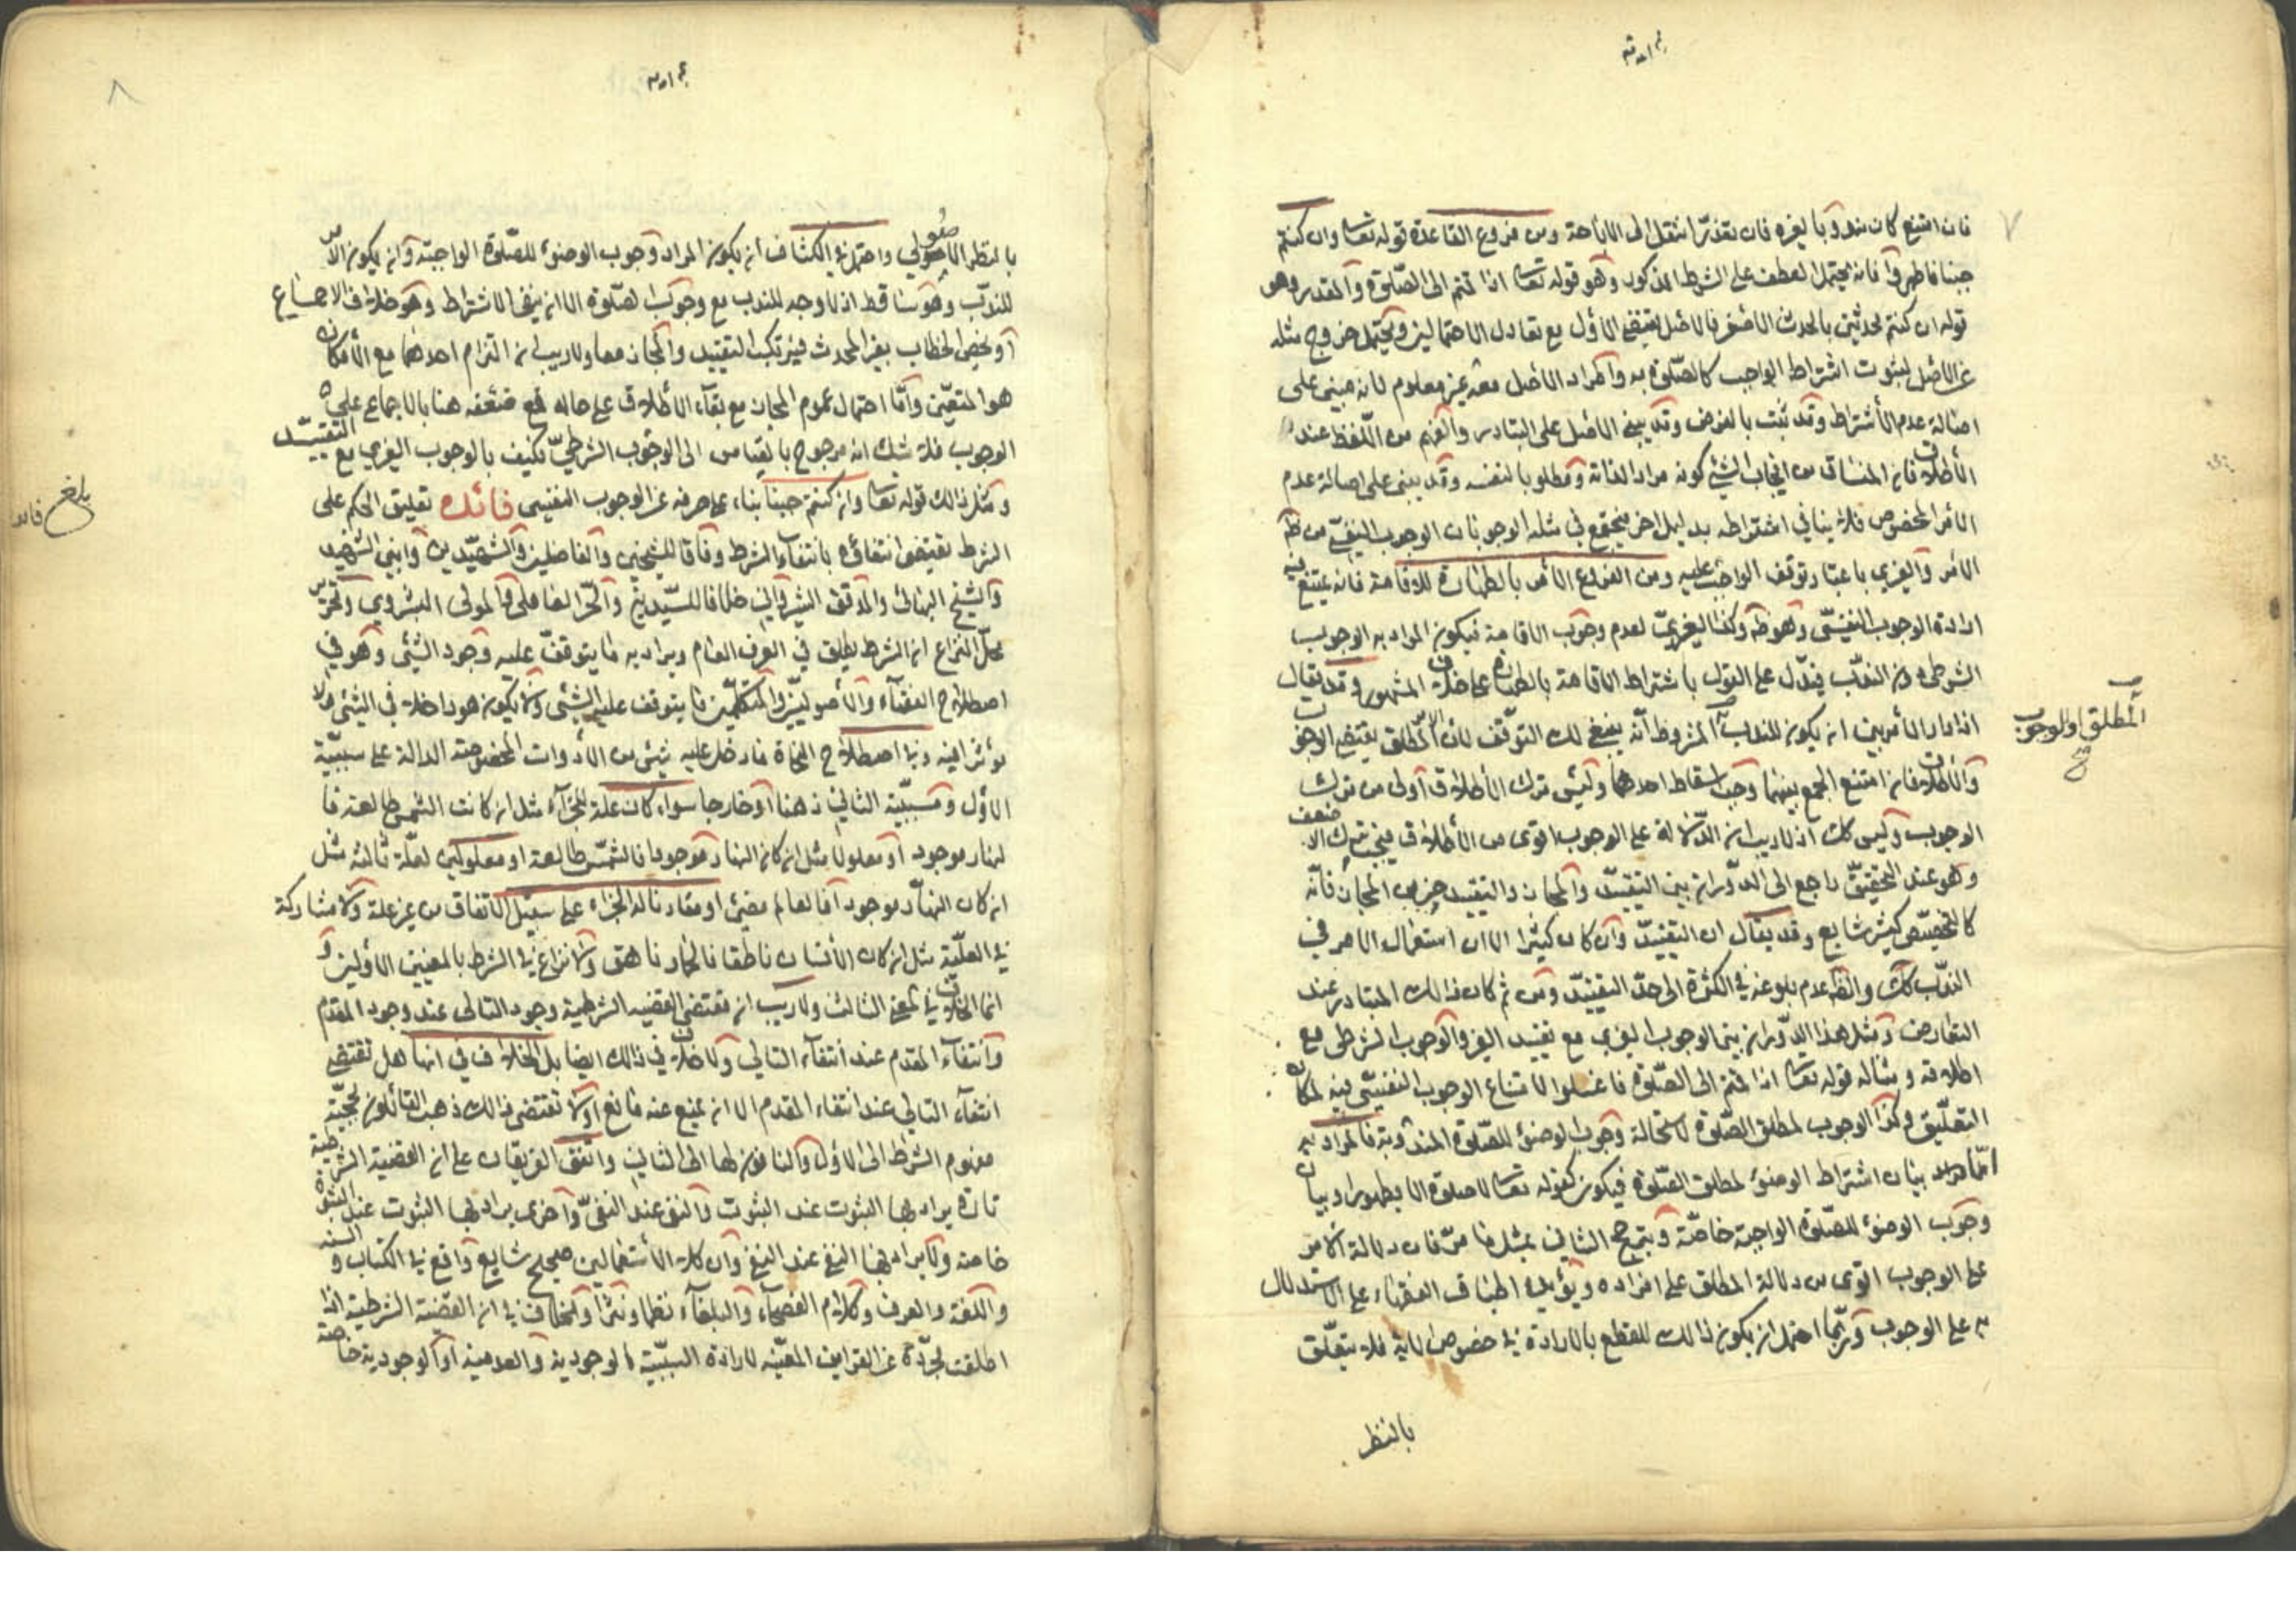 ٧
فان امتنع كان مندوبا لغيره فان تعذر انتقل الى الاباحة ومن فروع القاعدة قوله تعا وان كنتم
جنبا فاطهروا فانه يحتمل العطف على الشرط المذكور وهو قوله تعا اذا قمتم الى الصلوة والمقدر وهو
قوله ان كنتم محدثين بالحدث الاصغر فالاصل يقتضى الاول مع تعادل الاحتمالين ويحتمل خروج مثله
عن الاصل لثبوت اشتراط الواجب كالصلوة به واطراد الاصل معه غير معلوم لانه مبنى على
اصالة عدم الاشتراط وقد ثبت بالفرض وقد يبنى الاصل على التبادر والفهم من اللفظ عند
الأطلاق فان المنساق من ايجاب الشئ كونه مرادا لذاته ومطلوبا لنفسه وقد يبنى على اصالة عدم
الامر المخصوص فلا ينافي اشتراطه بدليل اخر فيجتمع في مثله الوجوبان الوجوب النفسي من
الامر والغيري باعتبار توقف الواجب عليه ومن الفروع الامر بالطهارة للاقامة فانه يمتنع فيه
ارادة الوجوب النفسى وهو ظ وكذا الغيري لعدم وجوب الاقامة فيكون المراد به الوجوب
الشرطى دون الندب فيدل على القول باشتراط الاقامة بالطهارة على خلاف المشهور وقد يقال
اذا دار الأمر بين ان يكون للندب المشروط انه ينبغي لك التوقف لان المطلق يقتضى الوجوب
والاطلاق فان امتنع الجمع بينهما وجب اسقاط احدهما وليس ترك الأطلاق اولى من ترك
الوجوب وليس كك اذ لا ريب ان الدلالة على الوجوب اقوى من الأطلاق فيجب ترك الاضعف
وهو عند التحقيق راجع الى الدوران بين التقييد والمجاز والتقييد خير من المجاز فانه
كالتخصيص كثير شايع وقد يقال ان التقييد وان كان كثيرا الا ان استعمال الامر في
الندب كك والظ عدم بلوغه في الكثرة الى حد التقييد ومن ثم كان ذالك المتبادر عند
التعارض ومثل هذا الدوران بين الوجوب الغيري مع تقييد الغير والوجوب الشرطى مع
اطلاقه ومثاله قوله تعا اذا قمتم الى الصلوة فاغسلوا لامتناع الوجوب النفسى فيه لمكان
التعليق وكذا الوجوب لمطلق الصلوة لاستحالة وجوب الوضوء للصلوة المندوبة فالمراد به
اما بيان اشتراط الوضوء لمطلق الصلوة فيكون كقوله تعا لا صلوة الا بطهور او بيان
وجوب الوضوء للصلوة الواجبة خاصة ويترجح الثاني بمثل ما مر فان دلالة الامر
على الوجوب اقوى من دلالة المطلق على افراده ويؤيده اطباق الفقهاء على الاستدلال
به على الوجوب وربما احتمل ان يكون ذالك للقطع بالارادة في خصوص الاية فلا يتعلق
بالنظر
المطلق او الوجوب
٨
بالنظر الاصولي واحتمل في الكشاف ان يكون المراد وجوب الوضوء للصلوة الواجبة وان يكون الامر
للندب وهو ساقط اذ لا وجه للندب مع وجوب الصلوة الا ان ينفى الاشتراط وهو خلاف الاجماع
او يخص الخطاب بغير المحدث فيرتكب التقييد والمجاز معا ولا ريب ان التزام احدهما مع الأمكان
هو المتعين واما احتمال عموم المجاز مع بقاء الأطلاق على حاله فمع ضعفه هنا بالاجماع على
الوجوب فلا شك انه مرجوح بالقياس الى الوجوب الشرطي فكيف بالوجوب الغيري مع التقييد
ومثل ذالك قوله تعا وان كنتم جنبا بناء على صرفه عن الوجوب النفسى فائدة تعليق الحكم على
الشرط يقتضى انتفائه بانتفاء الشرط وفاقا للشيخين والفاضلين والشهيدين وابنى الشهيد
والشيخ البهائى والمدقق الشيرواني خلافا للسيدين والحر العاملى والمولى البشروي وتحرير
محل النزاع ان الشرط يطلق في العرف العام ويراد به ما يتوقف عليه وجود الشئ وهو في
اصطلاح الفقهاء والأصوليين والمتكلمين ما يتوقف عليه الشئ ولا يكون هو داخلا في الشئ ولا
مؤثرا فيه وفي اصطلاح النحاة ما دخل عليه شئ من الأدوات المخصوصة الدالة على سببية
الاول ومسببية الثاني ذهنا او خارجا سواء كان علة للجزاء مثل ان كانت الشمس طالعة فا
لنهار موجود او معلولا مثل ان كان النهار موجودا فالشمس طالعة او معلولين لعلة ثالثة مثل
ان كان النهار موجودا فالعالم مضئ او مقارنا له الجزاء على سبيل الاتفاق من غير علة ولا مشاركة
في العلية مثل ان كان الأنسان ناطقا فالحمار ناهق ولا نزاع في الشرط بالمعنيين الأولين و
انما الخلاف في المعنى الثالث ولا ريب ان مقتضى القضية الشرطية وجود التالى عند وجود المقدم
وانتفاء المقدم عند انتفاء التالي ولا خلاف في ذالك ايضا بل الخلاف في انها هل تقتضى
انتفاء التالي عند انتفاء المقدم الا ان يمنع عنه مانع اولا تقتضى ذالك ذهب القائلون بحجية
مفهوم الشرط الى الاول والنافون لها الى الثاني واتفق الفريقان على ان القضية الشرطية
تارة يراد بها الثبوت عند الثبوت والنفى عند النفي واخرى يراد بها الثبوت عند الثبوت
خاصة ولا يراد بها النفى عند النفى وان كلا الأستعمالين صحيح شايع واقع في الكتاب والسنة
واللغة والعرف وكلام الفصحاء والبلغاء نظما ونثرا والخلاف في ان القضية الشرطية اذا
اطلقت مجردة عن القراين المعينة لارادة السببية الوجودية والعدمية او الوجودية خاصة
بلغ